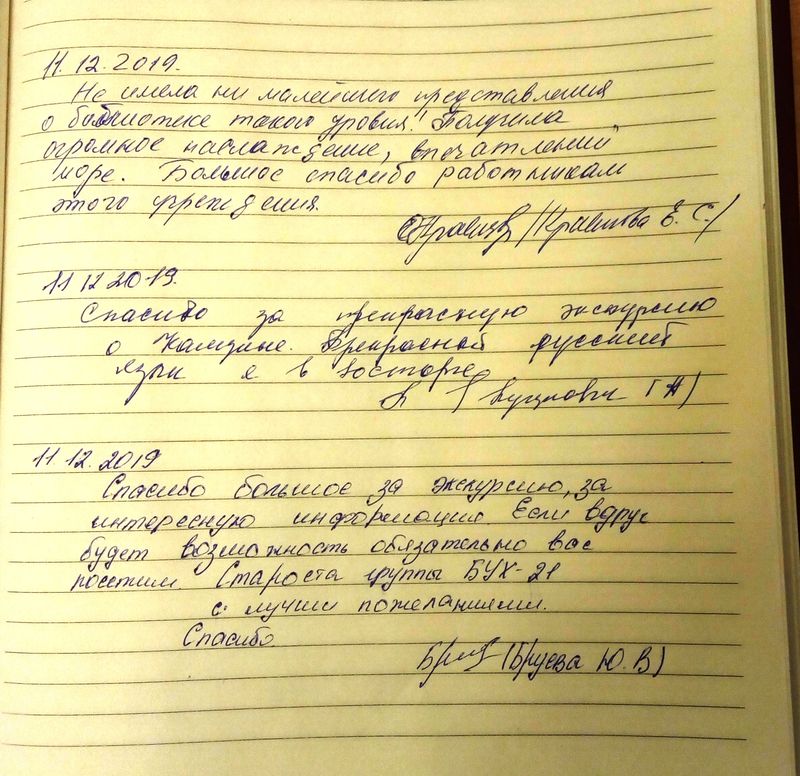 11.12.2019.
Не имела ни малейшего представления
о библиотеке такого уровня! Получила
огромное наслаждение, впечатлений
море. Большое спасибо работникам
этого учреждения.
/Кравцова Е. С./
11 12 2019.
Спасибо за прекрасную экскурсию
о Прекрасной русский
язык я в восторге
11.12.2019
Спасибо большое за экскурсию, за
интересную информацию. Если вдруг
будет возможность обязательно вас
посетим. Староста группы БУХ-21
с лучши пожеланиями.
Спасибо.
(Бруева Ю. В)